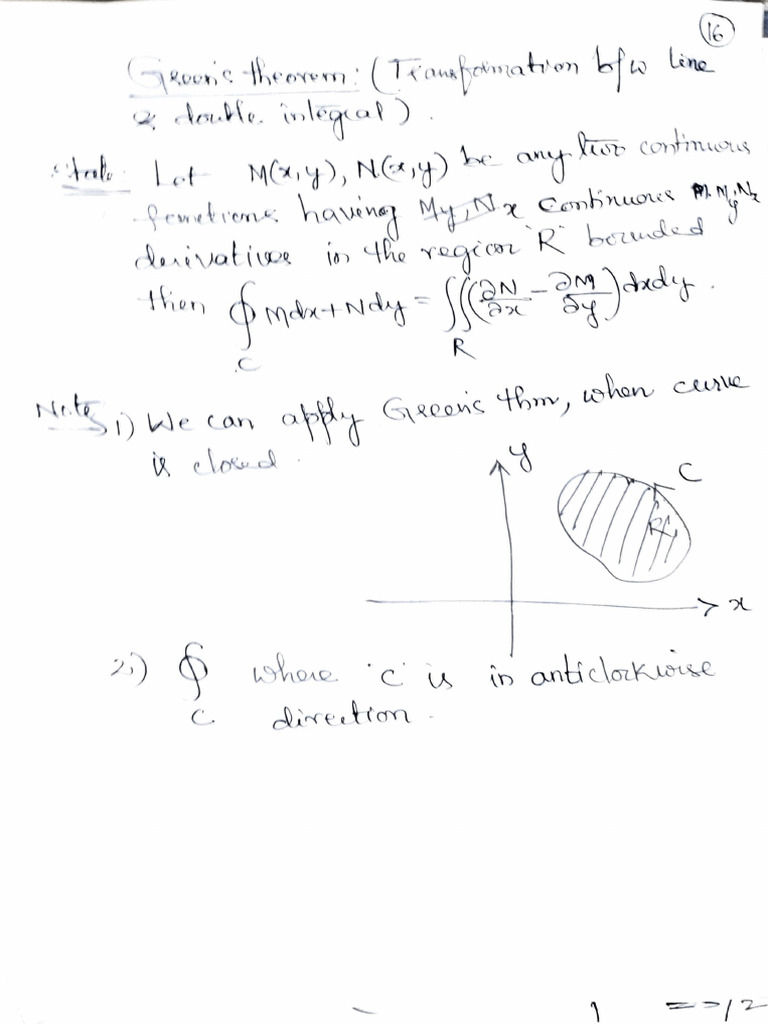 16
Green's theorem: (Transformation b/w line
& double integral).
Let M(x,y), N(x,y) be any two continuous
functions having My, Nx continuous My Nx
derivatives in the region 'R' bounded
then ∮_C Mdx+Ndy = ∬_R (∂N/∂x - ∂M/∂y) dxdy.
Note 1) We can apply Green's thm, when curve
is closed.
y
C
R
x
2) ∮_C where 'C' is in anticlockwise
direction.